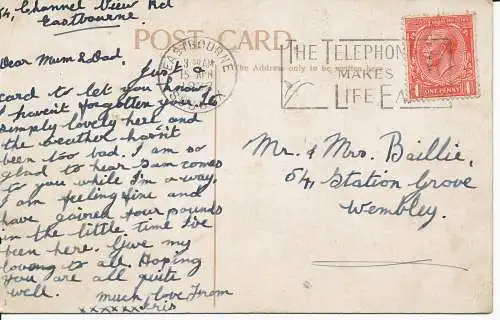 54, Channel View Rd
Eastbourne.
POST CARD
Dear Mum & Dad,
Just a
card to let you know
I haven't forgotten you. It's
simply lovely here and
the weather hasn't
been too bad. I am so
glad to hear Sam comes
to you while I'm away.
I am feeling fine and
have gained four pounds
in the little time I've
been here. Give my
love to all. Hoping
you are all quite
well.
much love from
xxxxxx Iris
The Address only to be written here
EASTBOURNE
15 APR
SUSSEX
THE TELEPHONE
MAKES
LIFE EA
ONE PENNY
Mr. & Mrs. Baillie,
54, Station Grove
Wembley.